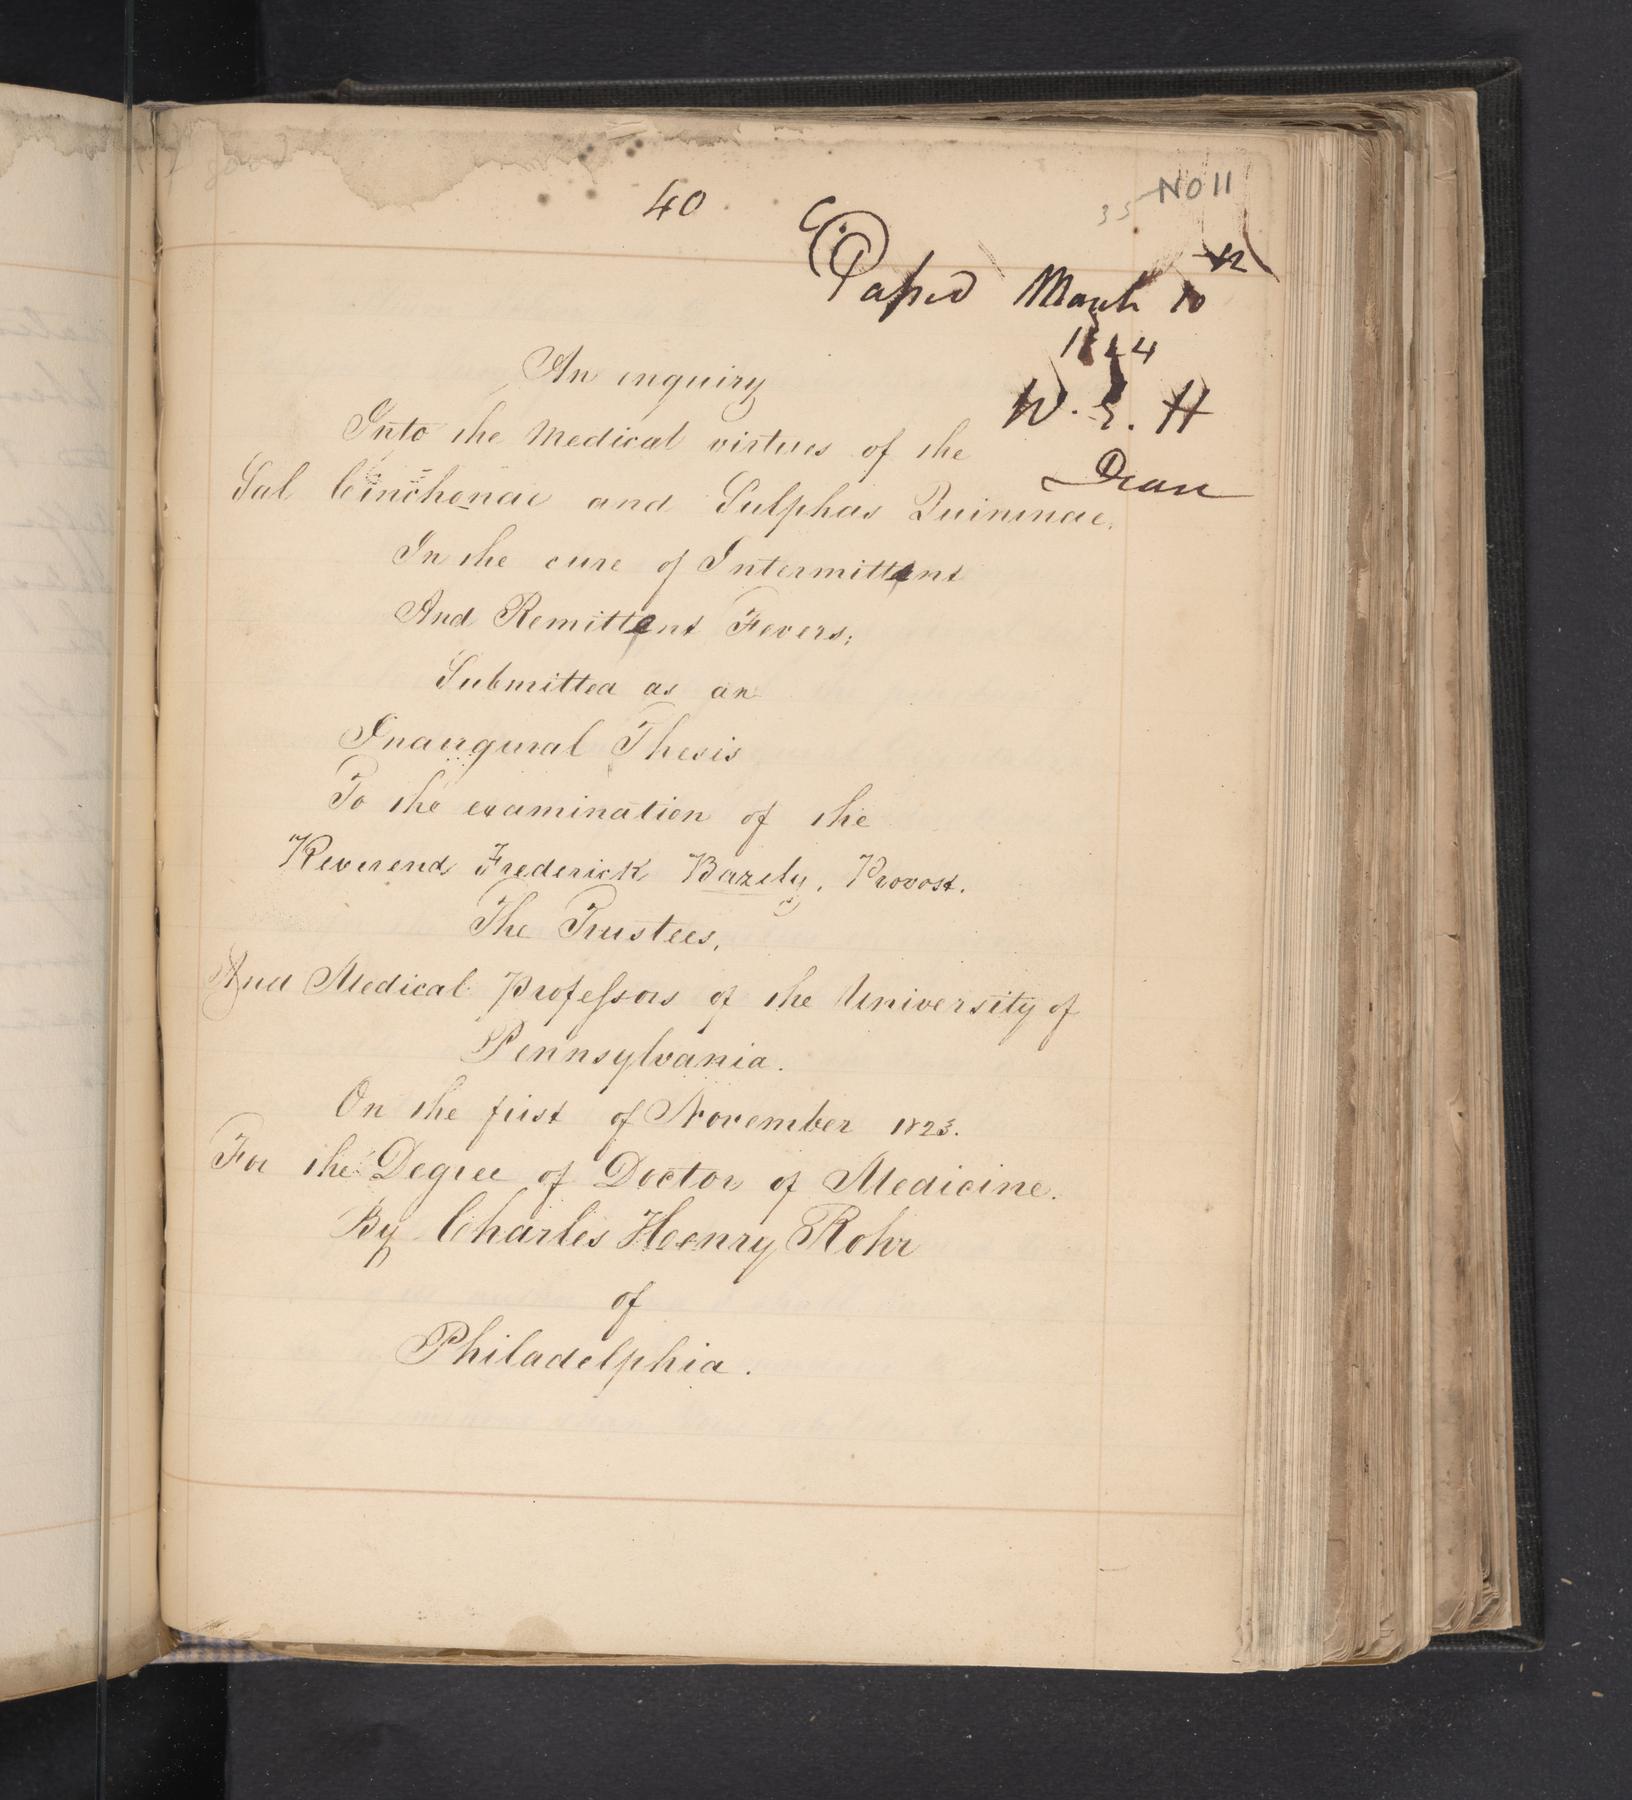 40
NO 11
35
Pafsed March 10
12
1824
W. E. H
Dean
An inquiry
Into the Medical virtues of the
Sal Cinchonae and Sulphas Quininae,
In the cure of Intermittent
And Remittent Fevers;
Submitted as an
Inaugural Thesis
To the examination of the
Reverend Frederick Bazely, Provost.
The Trustees,
And Medical Profefsors of the University of
Pennsylvania.
On the first of November 1823.
For the Degree of Doctor of Medicine.
By Charles Henry Rohr
of
Philadelphia.